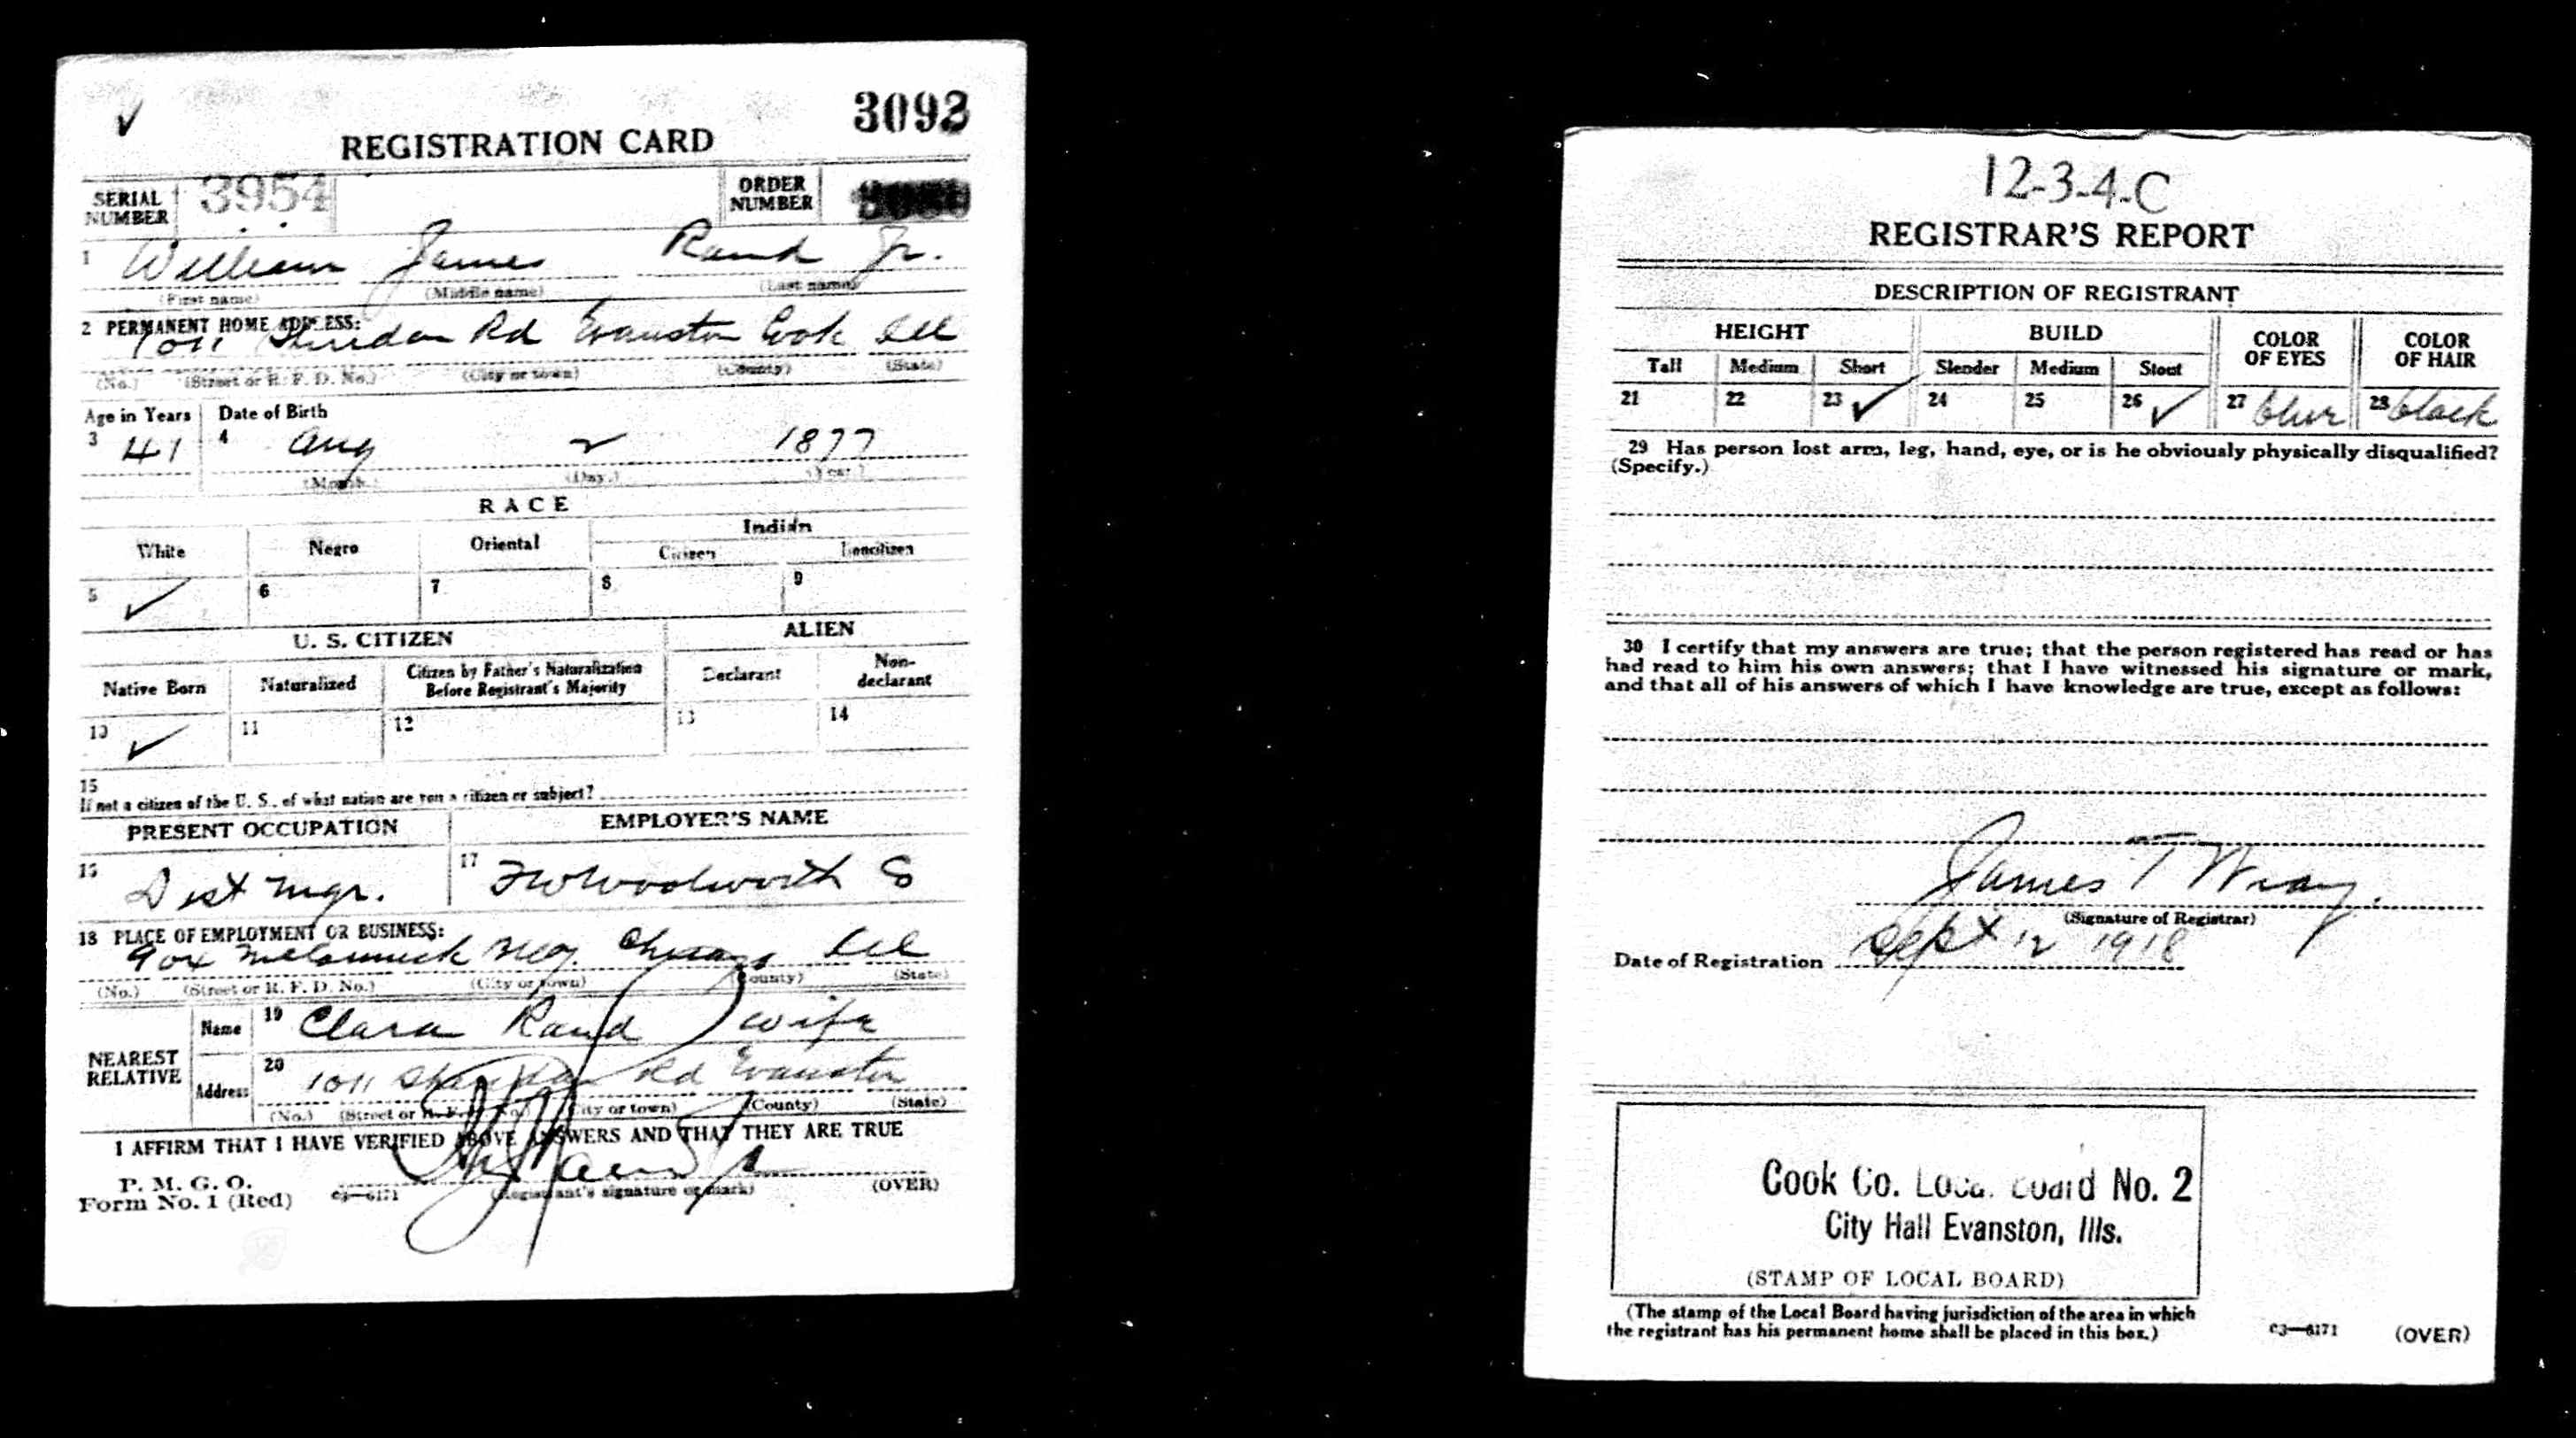 3093
REGISTRATION CARD
SERIAL NUMBER 3954 ORDER NUMBER
1 William James Rand Jr.
(First name) (Middle name) (Last name)
2 PERMANENT HOME ADDRESS:
1011 Sheridan Rd Evanston Cook Ill
(No.) (Street or R. F. D. No.) (City or town) (County) (State)
Age in Years Date of Birth
3 41 4 Aug 2 1877
(Month.) (Day.) (Year.)
RACE
White Negro Oriental Indian
Citizen Noncitizen
5 ✓ 6 7 8 9
U. S. CITIZEN ALIEN
Native Born Naturalized Citizen by Father's Naturalization Before Registrant's Majority Declarant Non-declarant
10 ✓ 11 12 13 14
15
If not a citizen of the U. S., of what nation are you a citizen or subject?
PRESENT OCCUPATION EMPLOYER'S NAME
16 Dist Mgr. 17 F W Woolworth Co
18 PLACE OF EMPLOYMENT OR BUSINESS:
904 McCormick Bldg. Chicago Ill
(No.) (Street or R. F. D. No.) (City or town) (County) (State)
NEAREST RELATIVE
Name 19 Clara Rand wife
Address 20 1011 Sheridan Rd Evanston
(No.) (Street or R. F. D. No.) (City or town) (County) (State)
I AFFIRM THAT I HAVE VERIFIED ABOVE ANSWERS AND THAT THEY ARE TRUE
P. M. G. O.
Form No. 1 (Red) c3—6171 (Registrant's signature or mark) (OVER)
12-3-4-C
REGISTRAR'S REPORT
DESCRIPTION OF REGISTRANT
HEIGHT BUILD COLOR OF EYES COLOR OF HAIR
Tall Medium Short Slender Medium Stout
21 22 23 ✓ 24 25 26 ✓ 27 blue 28 black
29 Has person lost arm, leg, hand, eye, or is he obviously physically disqualified?
(Specify.)
30 I certify that my answers are true; that the person registered has read or has
had read to him his own answers; that I have witnessed his signature or mark,
and that all of his answers of which I have knowledge are true, except as follows:
James T Wray.
(Signature of Registrar)
Date of Registration Sept 12 1918
Cook Co. Local Board No. 2
City Hall Evanston, Ills.
(STAMP OF LOCAL BOARD)
(The stamp of the Local Board having jurisdiction of the area in which
the registrant has his permanent home shall be placed in this box.)
c3—6171 (OVER)